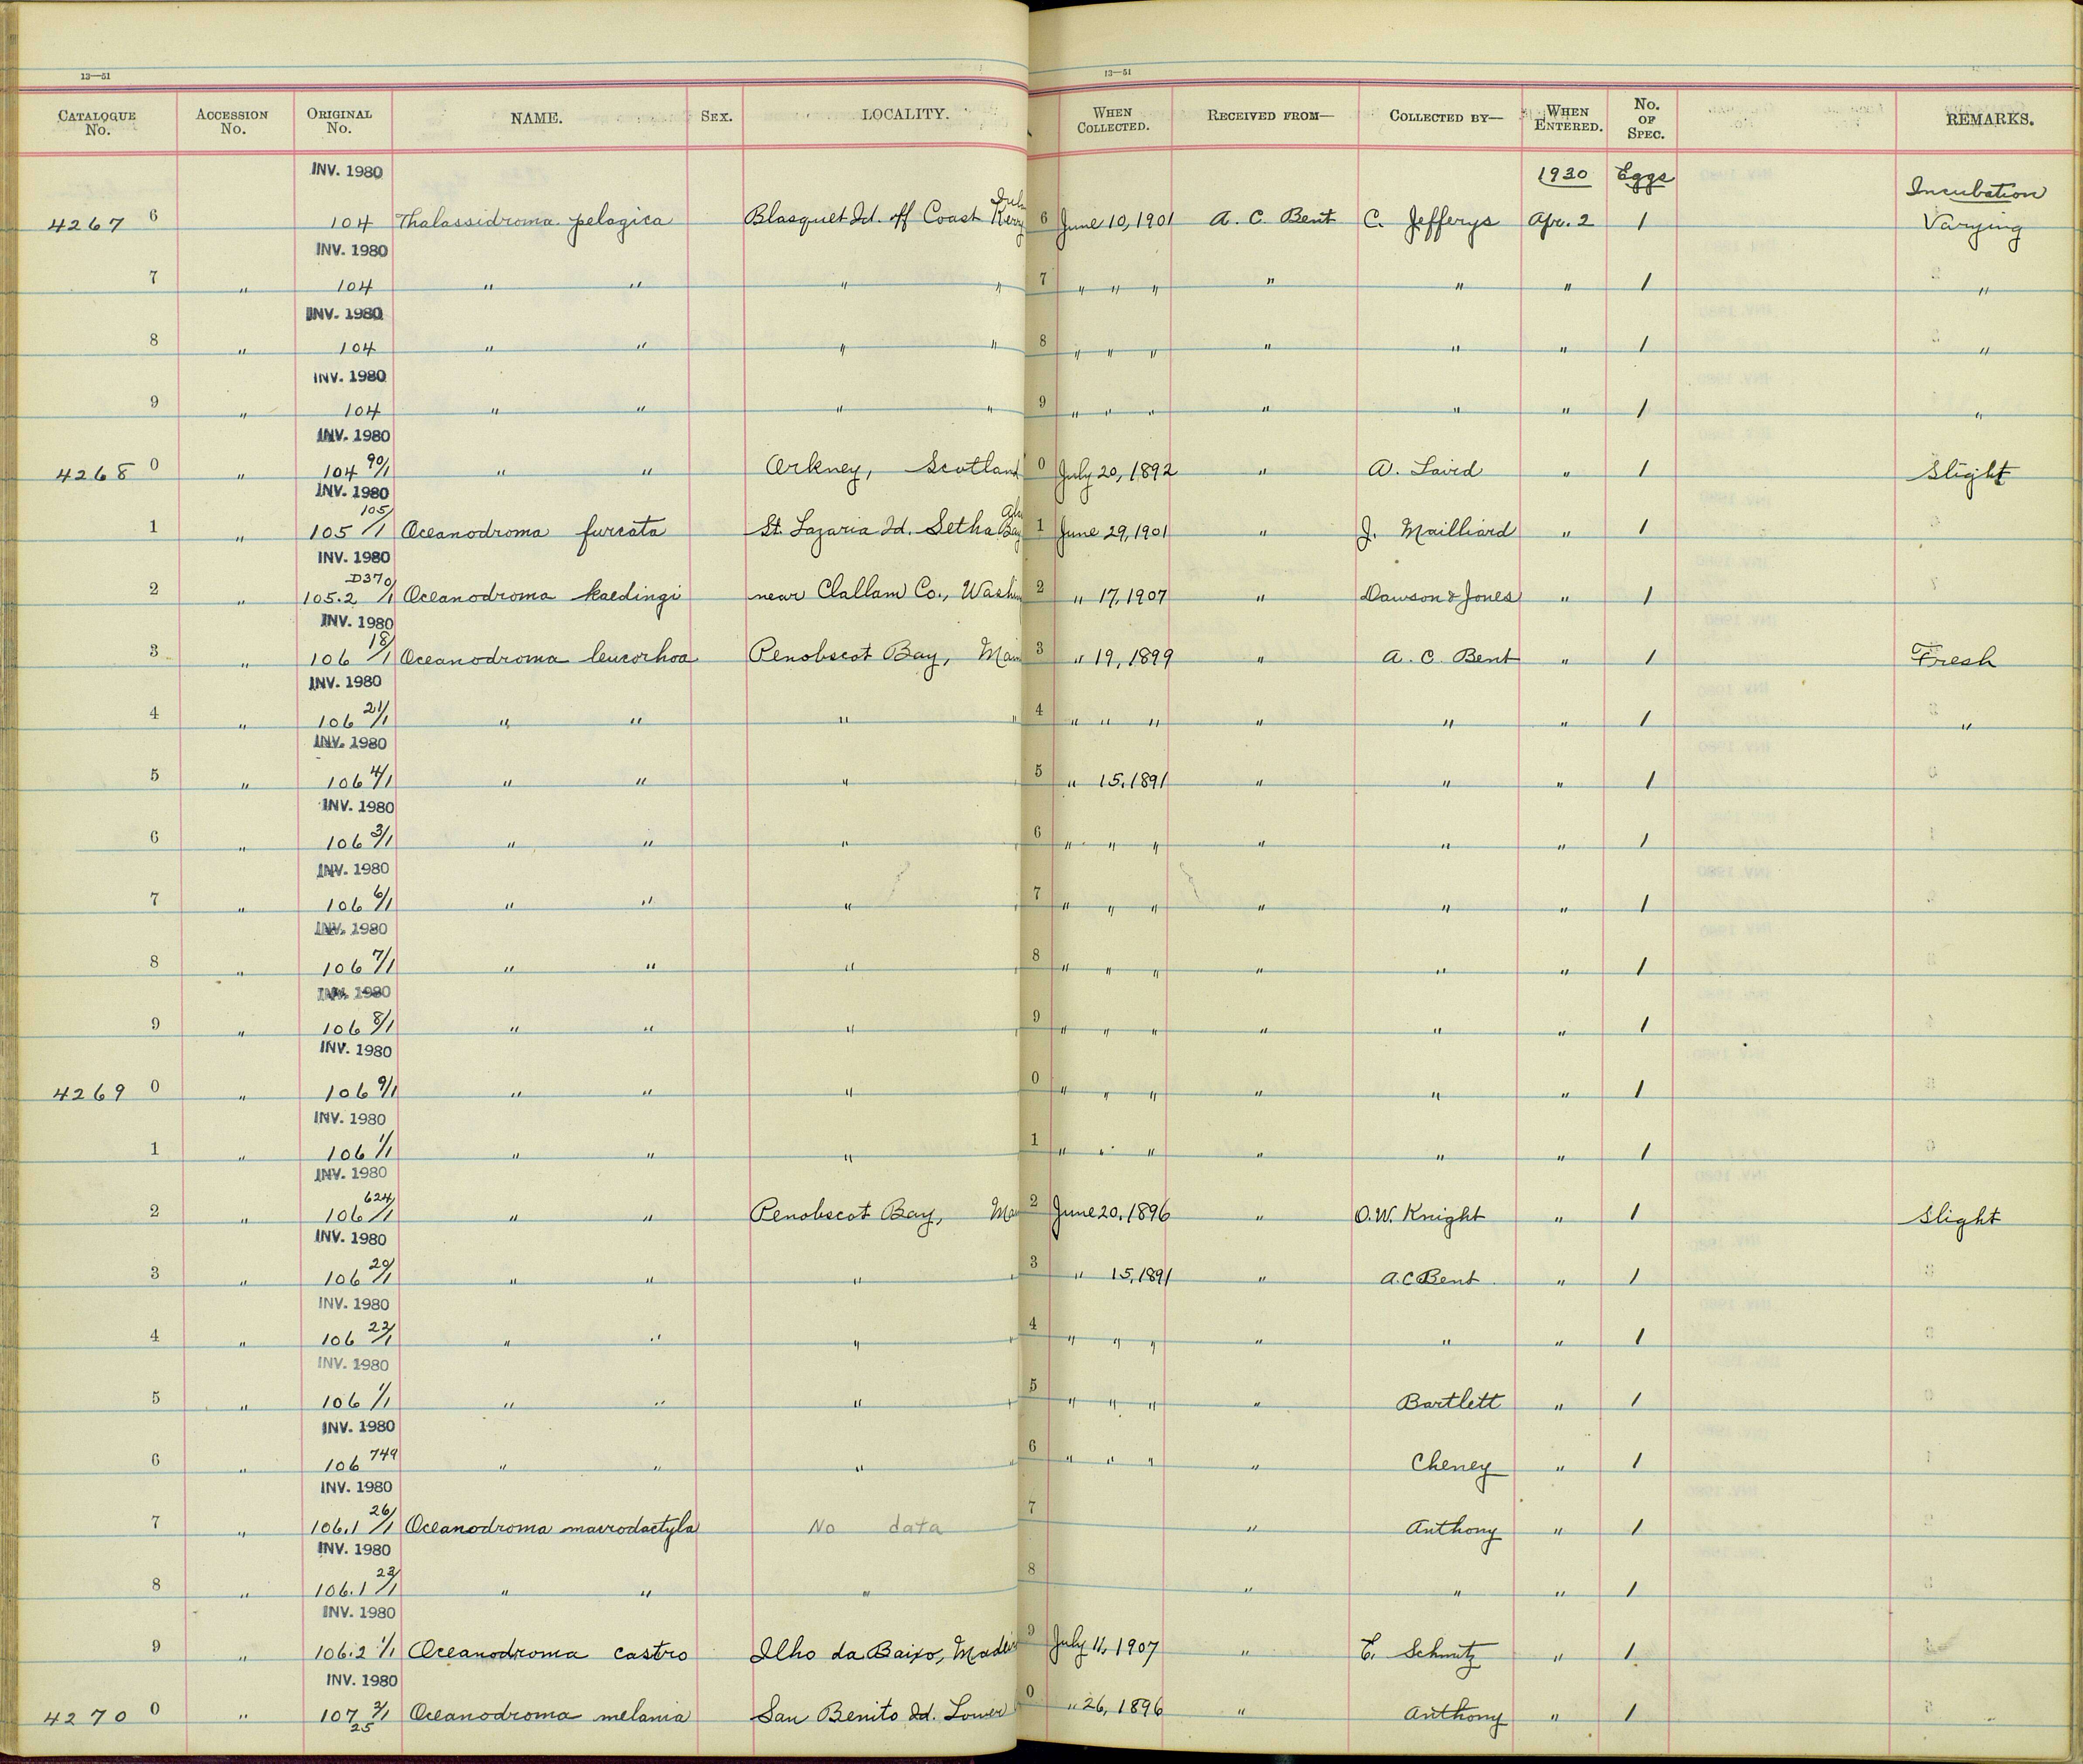 13—51
13—51
CATALOGUE No. ACCESSION No. ORIGINAL No. NAME. SEX. LOCALITY. WHEN COLLECTED. RECEIVED FROM— COLLECTED BY— WHEN ENTERED. No. OF SPEC. REMARKS.
INV. 1980 1930 Eggs Incubation
4267 6 104 Thalassidroma pelagica Blasquet Id. off Coast Kerry 6 June 10, 1901 A. C. Bent C. Jefferys Apr. 2 1 Varying
INV. 1980
7 " 104 " " " " 7 " " " " " " 1 "
INV. 1980
8 " 104 " " " " 8 " " " " " " 1 "
INV. 1980
9 " 104 " " " " 9 " " " " " " 1 "
INV. 1980
4268 0 " 104 90/1 " " Orkney, Scotland 0 July 20, 1892 " A. Laird " 1 Slight
INV. 1980
1 " 105 105/1 Oceanodroma furcata St. Lazaria Id. Setka Bay 1 June 29, 1901 " J. Mailliard " 1
INV. 1980
2 " 105.2 D370/1 Oceanodroma kaedingi near Clallam Co., Washin 2 " 17, 1907 " Dawson & Jones " 1
INV. 1980
3 " 106 18/1 Oceanodroma leucorhoa Penobscot Bay, Main 3 " 19, 1899 " A. C. Bent " 1 Fresh
INV. 1980
4 " 106 21/1 " " " " 4 " " " " " " 1 "
INV. 1980
5 " 106 4/1 " " " 5 " 15, 1891 " " " 1
INV. 1980
6 " 106 3/1 " " " 6 " " " " " " 1
INV. 1980
7 " 106 6/1 " " " 7 " " " " " " 1
INV. 1980
8 " 106 7/1 " " " 8 " " " " " " 1
INV. 1980
9 " 106 8/1 " " " 9 " " " " " " 1
INV. 1980
4269 0 " 106 9/1 " " " 0 " " " " " " 1
INV. 1980
1 " 106 1/1 " " " 1 " " " " " " 1
INV. 1980
2 " 106 624/1 " " Penobscot Bay, Ma 2 June 20, 1896 " O. W. Knight " 1 Slight
INV. 1980
3 " 106 20/1 " " " 3 " 15, 1891 " A. C Bent " 1
INV. 1980
4 " 106 22/1 " " " 4 " " " " " " 1
INV. 1980
5 " 106 1/1 " " " 5 " " " " Bartlett " 1
INV. 1980
6 " 106 749 " " " 6 " " " " Cheney " 1
INV. 1980
7 " 106.1 26/1 Oceanodroma macrodactyla No data 7 " Anthony " 1
INV. 1980
8 " 106.1 23/1 " " " 8 " " " 1
INV. 1980
9 " 106.2 1/1 Oceanodroma castro Ilho da Baixo, Madeir 9 July 11, 1907 " E. Schmitz " 1
INV. 1980
4270 0 " 107 2/1 25 Oceanodroma melania San Benito Id. Lower 0 " 26, 1896 " Anthony " 1